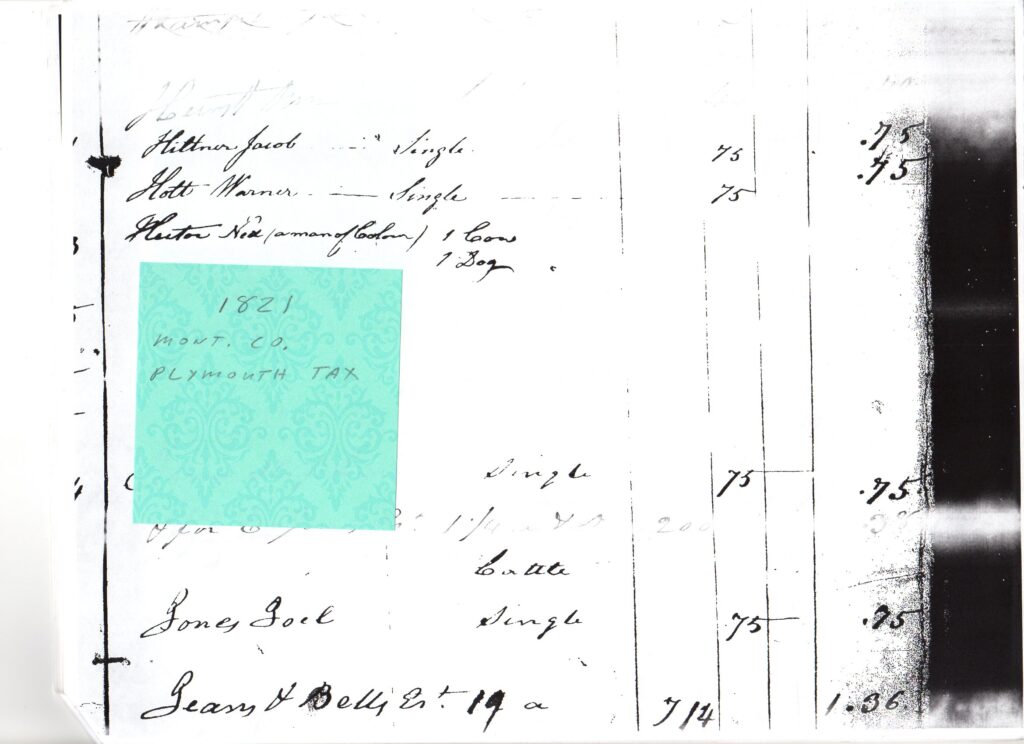 Hiltner Jacob Single 75 .75
Hott Warner Single 75 .75
Hector Ned (a man of Colour) 1 Cow
1 Dog
1821
MONT. CO.
PLYMOUTH TAX
Single 75 .75
& for 200
Cattle
Jones Joel Single 75 .75
Jears & Bells Est. 19 a 714 1.36